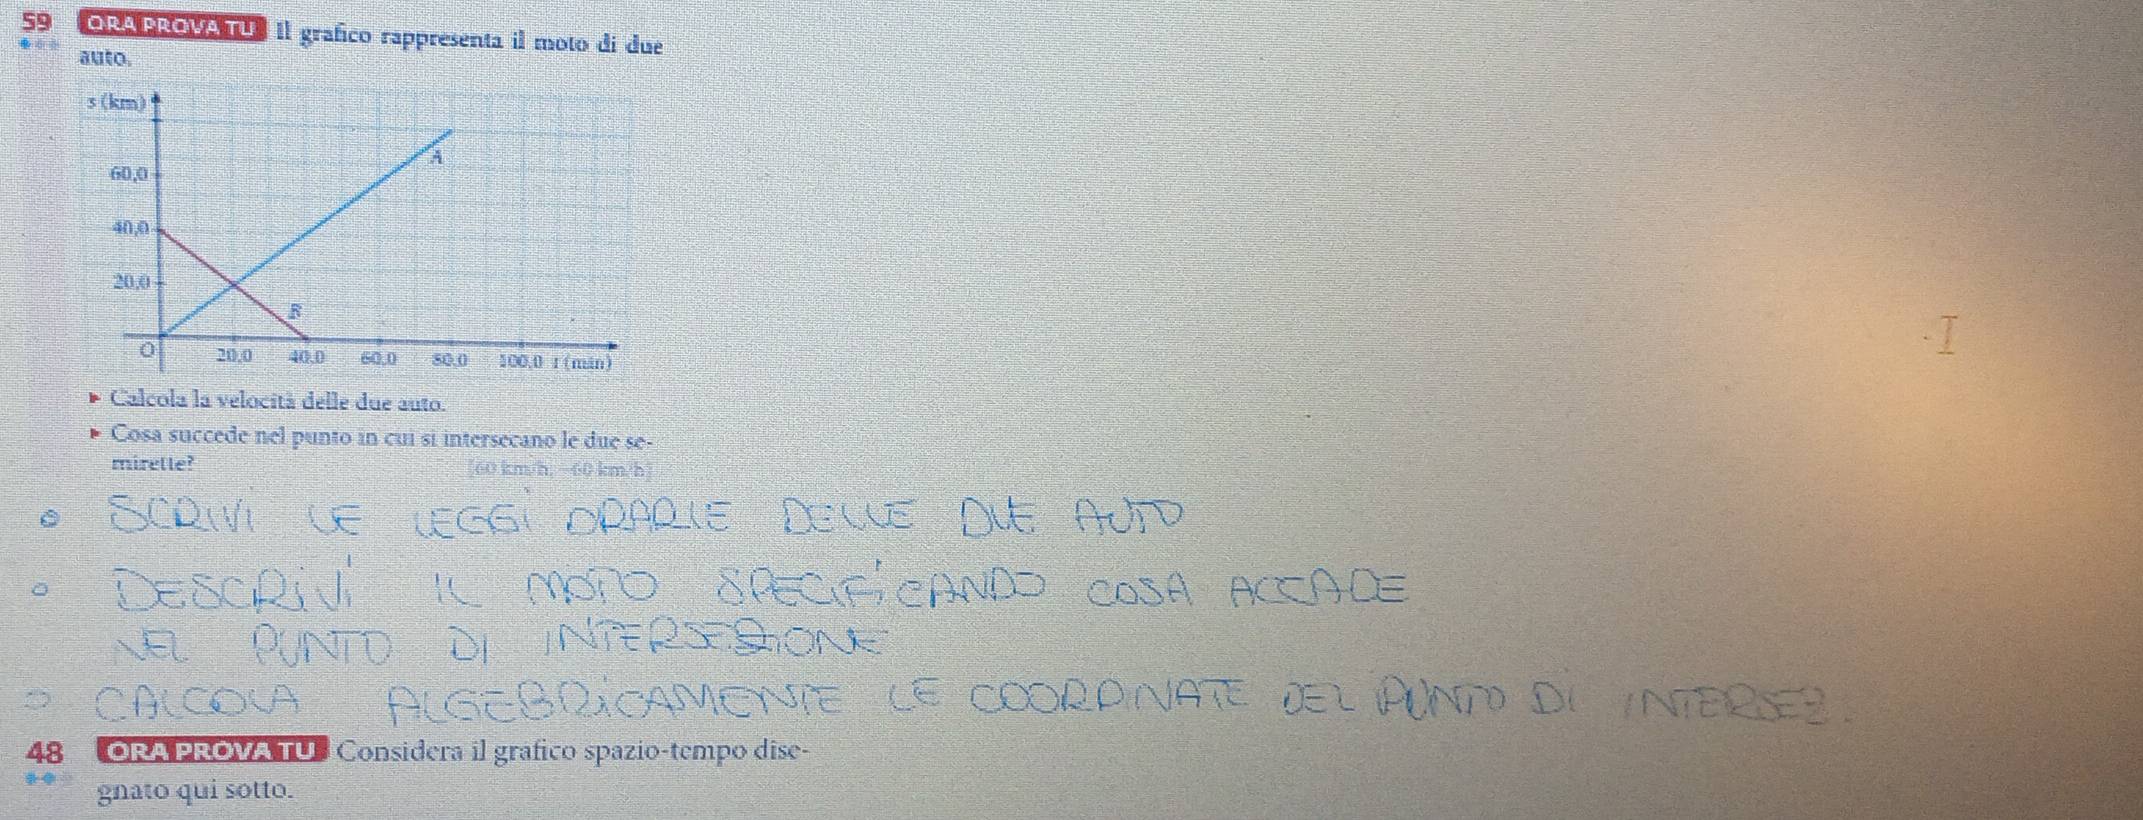 59 ORA PROVA TU Il grafico rappresenta il moto di due
auto.
s (km)
A
60,0
40,0
20,0
B
O 20,0 40,0 60,0 80,0 100,0 t (min)
▸ Calcola la velocità delle due auto.
▸ Cosa succede nel punto in cui si intersecano le due se-
mirette? [60 km/h; −60 km/h]
SCRIVI LE LEGGI ORARIE DELLE DUE AUTO
DESCRIVI IL MOTO SPECIFICANDO COSA ACCADE
NEL PUNTO DI INTERSEZIONE
CALCOLA ALGEBRICAMENTE LE COORDINATE DEL PUNTO DI INTERSEZ.
48 ORA PROVA TU Considera il grafico spazio-tempo dise-
gnato qui sotto.